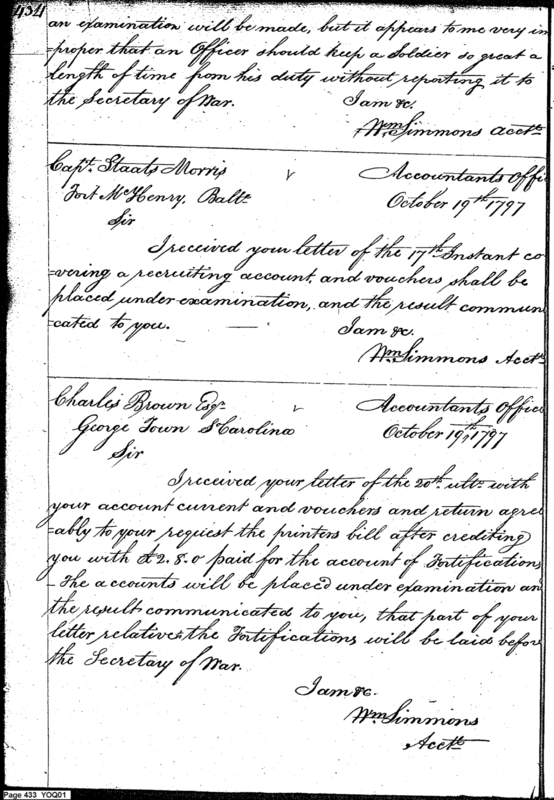 434
an examination will be made, but it appears to me very im
=proper that an Officer should keep a Soldier so great a
length of time from his duty without reporting it to
the Secretary of War. I am &c.
Wm Simmons Acctt
Capt. Staats Morris Accountants Offi
Fort McHenry, Balte October 19th 1797
Sir
I received your letter of the 17th Instant co
=vering a recruiting account, and vouchers shall be
placed under examination, and the result commun
=cated to you. I am &c.
Wm Simmons Acctt
Charles Brown Esqr Accountants Office
George Town S Carolina October 19th 1797
Sir
I received your letter of the 20th ulto with
your account current and vouchers and return agre
=ably to your request the printers bill after crediting
you with £2.8.0 paid for the account of Fortifications
- The accounts will be placed under examination an
the result communicated to you, that part of your
letter relative the Fortifications will be laid before
the Secretary of War.
I am &c.
Wm Simmons
Acctt
Page 433 YOQ01